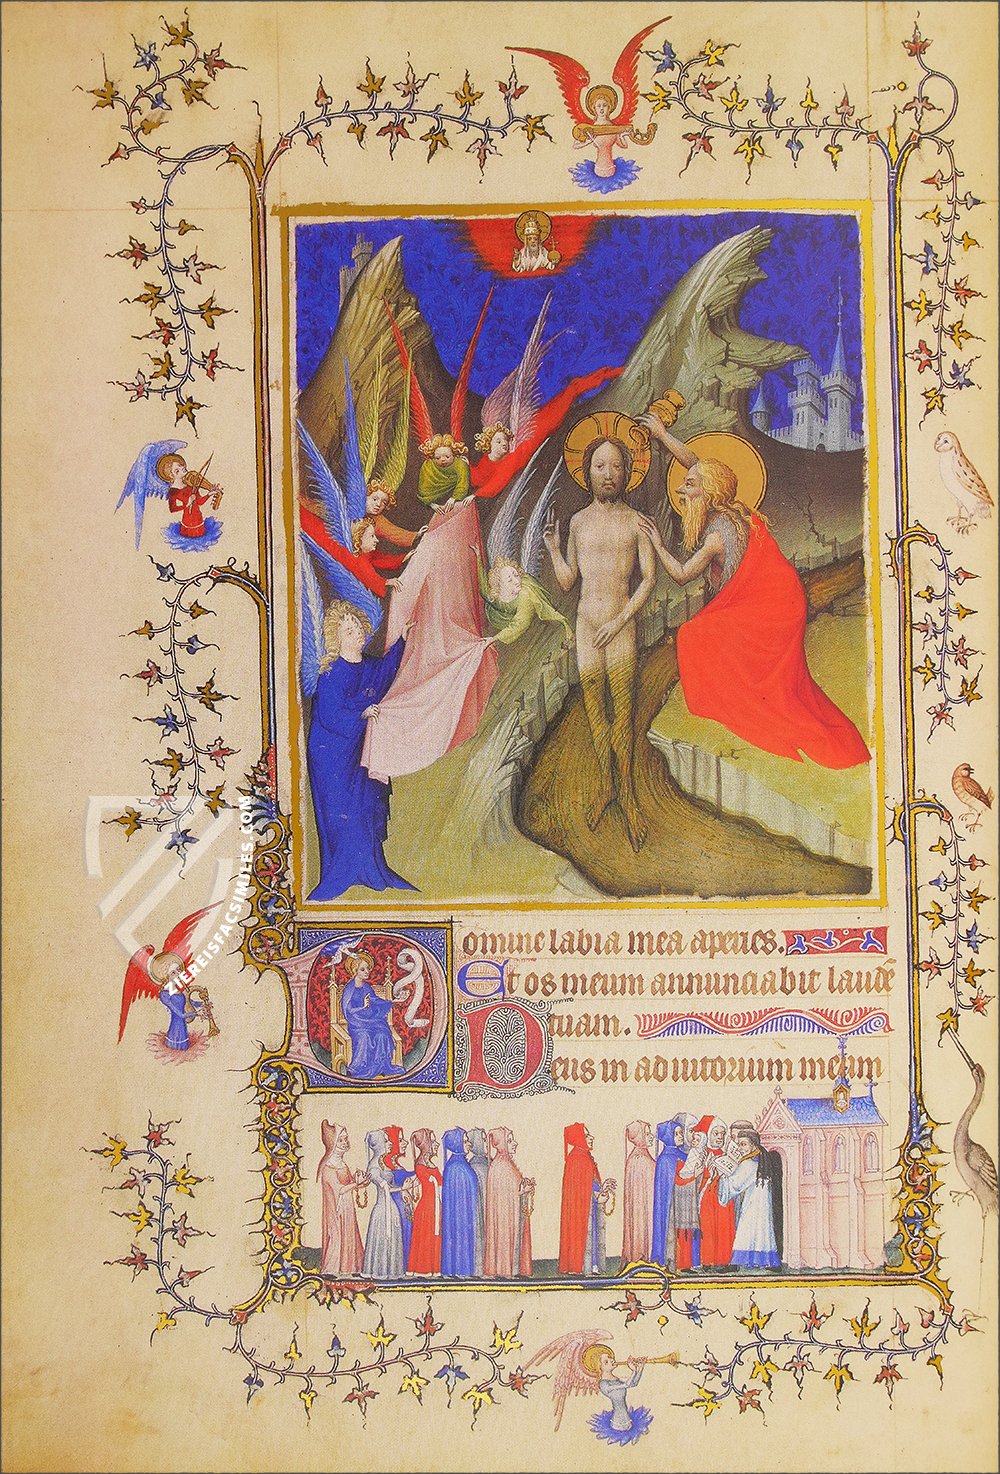 Domine labia mea aperies.
Et os meum annunciabit laudē
tuam.
Deus in adiutorium meum
ZIEREISFACSIMILES.COM